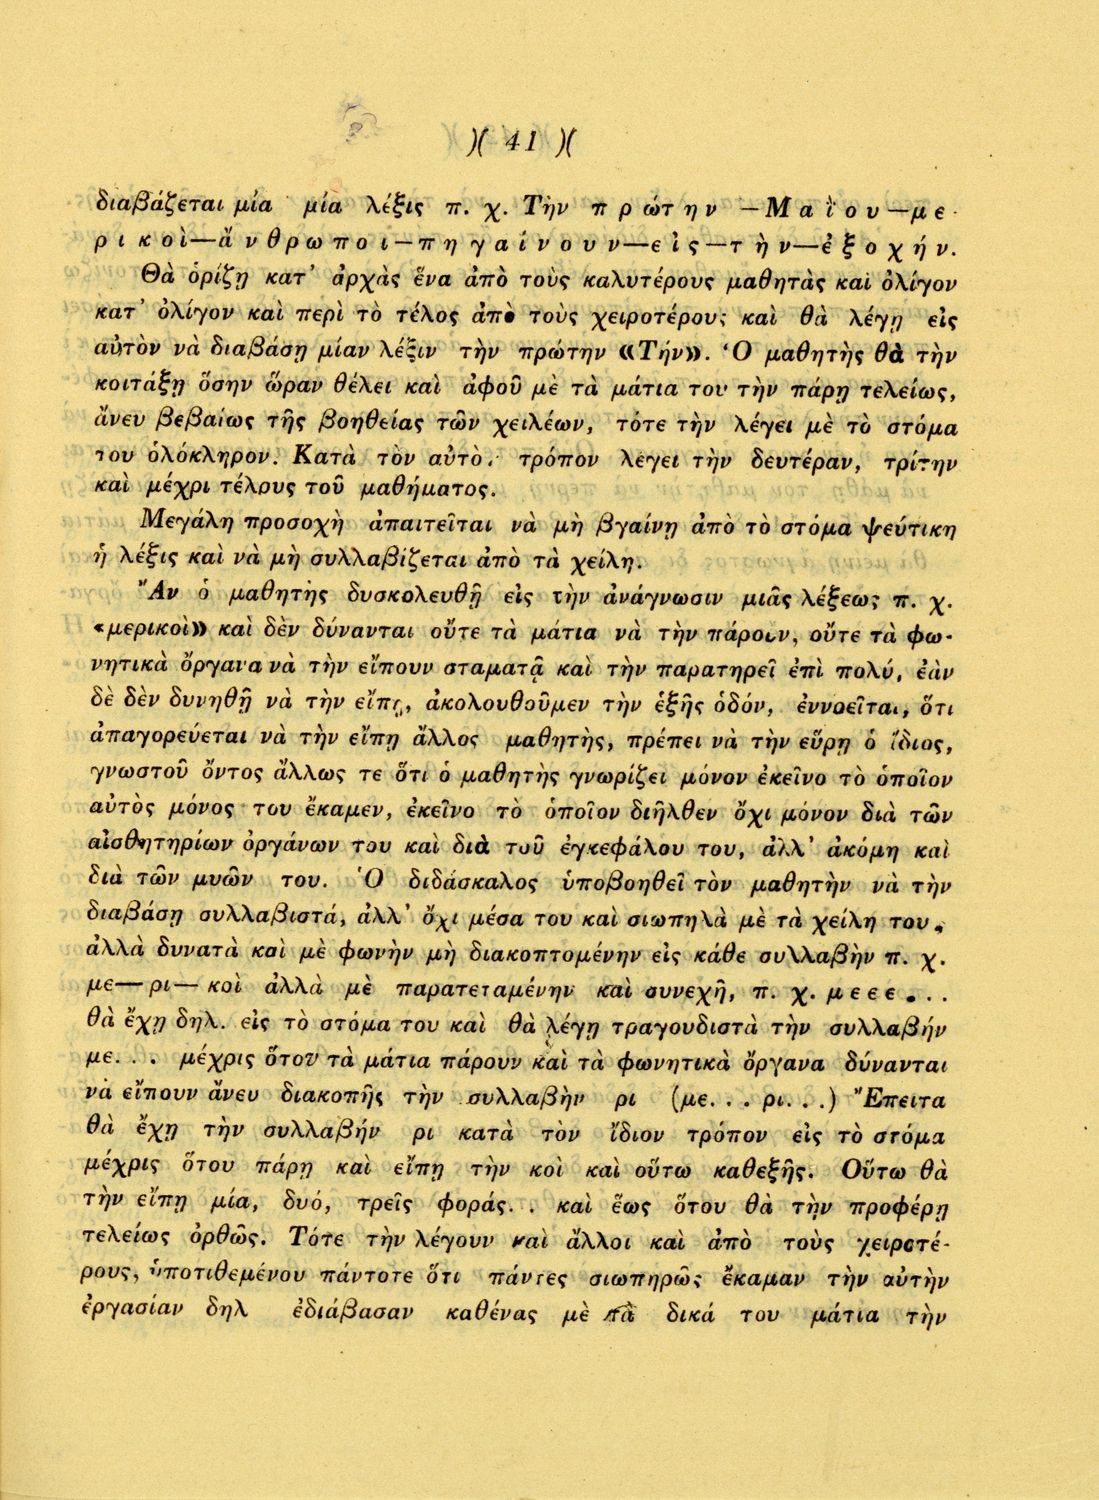 )( 41 )(
διαβάζεται μία μία λέξις π. χ. Τὴν πρώτην —Μαΐου—με
ρικοὶ—ἄνθρωποι—πηγαίνουν—εἰς—τὴν—ἐξοχήν.
Θὰ ὁρίζῃ κατ' ἀρχὰς ἕνα ἀπὸ τοὺς καλυτέρους μαθητὰς καὶ ὀλίγον
κατ' ὀλίγον καὶ περὶ τὸ τέλος ἀπὸ τοὺς χειροτέρους καὶ θὰ λέγῃ εἰς
αὐτὸν νὰ διαβάσῃ μίαν λέξιν τὴν πρώτην «Τήν». Ὁ μαθητὴς θὰ τὴν
κοιτάξῃ ὅσην ὥραν θέλει καὶ ἀφοῦ μὲ τὰ μάτια του τὴν πάρῃ τελείως,
ἄνευ βεβαίως τῆς βοηθείας τῶν χειλέων, τότε τὴν λέγει μὲ τὸ στόμα
του ὁλόκληρον. Κατὰ τὸν αὐτὸ. τρόπον λέγει τὴν δευτέραν, τρίτην
καὶ μέχρι τέλους τοῦ μαθήματος.
Μεγάλη προσοχὴ ἀπαιτεῖται νὰ μὴ βγαίνῃ ἀπὸ τὸ στόμα ψεύτικη
ἡ λέξις καὶ νὰ μὴ συλλαβίζεται ἀπὸ τὰ χείλη.
Ἂν ὁ μαθητὴς δυσκολευθῇ εἰς τὴν ἀνάγνωσιν μιᾶς λέξεως π. χ.
«μερικοὶ» καὶ δὲν δύνανται οὔτε τὰ μάτια νὰ τὴν πάρουν, οὔτε τὰ φω-
νητικὰ ὄργανα νὰ τὴν εἴπουν σταματᾷ καὶ τὴν παρατηρεῖ ἐπὶ πολύ, ἐὰν
δὲ δὲν δυνηθῇ νὰ τὴν εἴπῃ, ἀκολουθοῦμεν τὴν ἑξῆς ὁδόν, ἐννοεῖται, ὅτι
ἀπαγορεύεται νὰ τὴν εἴπῃ ἄλλος μαθητὴς, πρέπει νὰ τὴν εὕρῃ ὁ ἴδιος,
γνωστοῦ ὄντος ἄλλως τε ὅτι ὁ μαθητὴς γνωρίζει μόνον ἐκεῖνο τὸ ὁποῖον
αὐτὸς μόνος του ἔκαμεν, ἐκεῖνο τὸ ὁποῖον διῆλθεν ὄχι μόνον διὰ τῶν
αἰσθητηρίων ὀργάνων του καὶ διὰ τοῦ ἐγκεφάλου του, ἀλλ' ἀκόμη καὶ
διὰ τῶν μυῶν του. Ὁ διδάσκαλος ὑποβοηθεῖ τὸν μαθητὴν νὰ τὴν
διαβάσῃ συλλαβιστά, ἀλλ' ὄχι μέσα του καὶ σιωπηλὰ μὲ τὰ χείλη του,
ἀλλὰ δυνατὰ καὶ μὲ φωνὴν μὴ διακοπτομένην εἰς κάθε συλλαβὴν π. χ.
με— ρι— κοὶ ἀλλὰ μὲ παρατεταμένην καὶ συνεχῆ, π. χ. μεεε....
θὰ ἔχῃ δηλ. εἰς τὸ στόμα του καὶ θὰ λέγῃ τραγουδιστὰ τὴν συλλαβήν
με... μέχρις ὅτου τὰ μάτια πάρουν καὶ τὰ φωνητικὰ ὄργανα δύνανται
νὰ εἴπουν ἄνευ διακοπῆς τὴν συλλαβὴν ρι (με...ρι...) Ἔπειτα
θὰ ἔχῃ τὴν συλλαβήν ρι κατὰ τὸν ἴδιον τρόπον εἰς τὸ στόμα
μέχρις ὅτου πάρῃ καὶ εἴπῃ τὴν κοὶ καὶ οὕτω καθεξῆς. Οὕτω θὰ
τὴν εἴπῃ μία, δυό, τρεῖς φοράς.. καὶ ἕως ὅτου θὰ τὴν προφέρῃ
τελείως ὀρθῶς. Τότε τὴν λέγουν καὶ ἄλλοι καὶ ἀπὸ τοὺς χειροτέ-
ρους, ὑποτιθεμένου πάντοτε ὅτι πάντες σιωπηρῶς ἔκαμαν τὴν αὐτὴν
ἐργασίαν δηλ ἐδιάβασαν καθένας μὲ τὰ δικά του μάτια τὴν